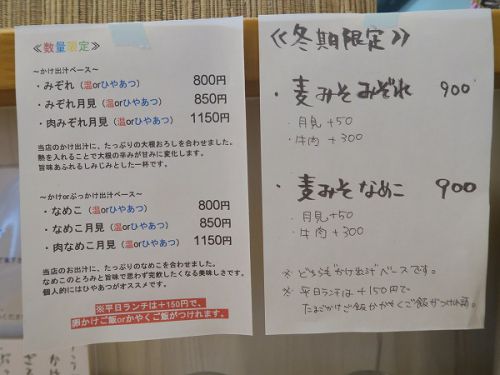 ≪数量限定≫
~かけ出汁ベース~
・みぞれ（温orひやあつ） 800円
・みぞれ月見（温orひやあつ） 850円
・肉みぞれ月見（温orひやあつ） 1150円
当店のかけ出汁に、たっぷりの大根おろしを合わせました。
熱を入れることで大根の辛みが甘みに変化します。
旨味あふれるしみじみとした一杯です。
~かけorぶっかけ出汁ベース~
・なめこ（温orひやあつ） 800円
・なめこ月見（温orひやあつ） 850円
・肉なめこ月見（温orひやあつ） 1150円
当店のお出汁に、たっぷりのなめこを合わせました。
なめこのとろみと旨味で思わず完飲したくなる美味しさです。
個人的にはひやあつがオススメです。
※平日ランチは+150円で、
卵かけご飯orかやくご飯がつけれます。
≪冬期限定≫
・麦みそみぞれ 900
・月見 +50
・牛肉 +300
・麦みそなめこ 900
・月見 +50
・牛肉 +300
※どちらも"かけ出汁"ベースです。
※平日ランチは+150円で
たまごかけご飯かかやくご飯がつけれます。